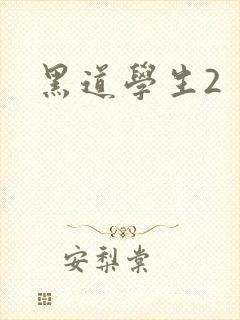 黑道學生2
安梨棠